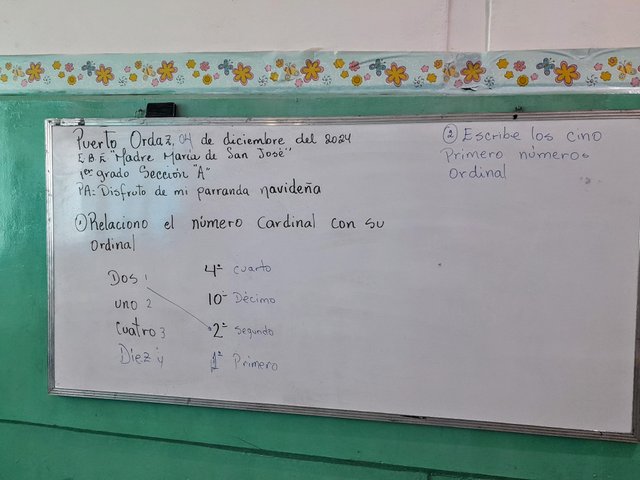 Puerto Ordaz, 04 de diciembre del 2024
E.B.E "Madre María de San José"
1er grado Sección "A"
PA: Disfruto de mi parranda navideña
① Relaciono el número Cardinal con su
Ordinal
Dos 1 4º cuarto
uno 2 10º Décimo
Cuatro 3 2º Segundo
Diez 4 1º Primero
② Escribe los cino
Primero números
Ordinal